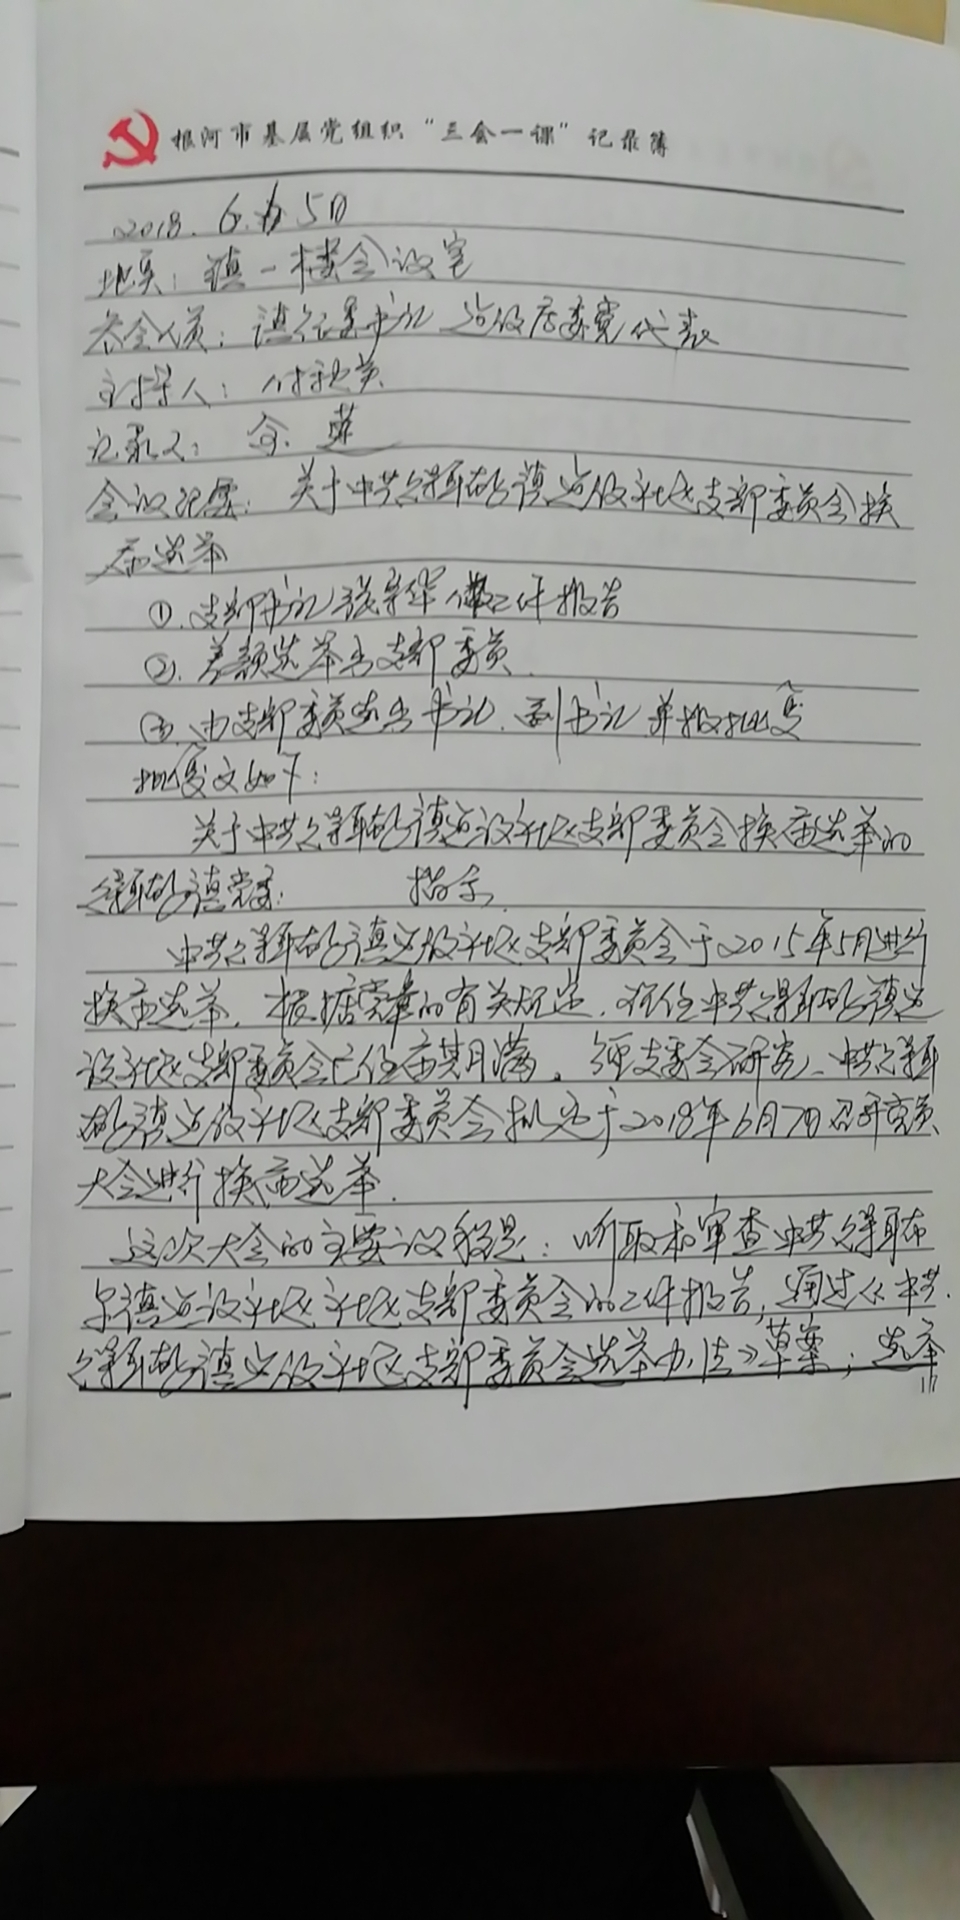 根河市基层党组织“三会一课”记录簿
2018.6.5日
地点：镇一楼会议室
参会人员：镇纪委书记 建设居委党代表
主持人：付秋英
记录人：
会议记要：关于中共得耳布尔镇建设社区支部委员会换
届选举
①.支部书记 做工作报告
②.差额选举出支部委员.
③.由支部委员选出书记.副书记并报批复
批复文如下：
关于中共得耳布尔镇建设社区支部委员会换届选举的
得耳布尔镇党委： 指示
中共得耳布尔镇建设社区支部委员会于2015年5月进行
换届选举.根据党章的有关规定.现任中共得耳布尔镇建
设社区支部委员会已任届期满。经支委会研究、中共得耳
布尔镇建设社区支部委员会拟定于2018年6月7日召开党员
大会进行换届选举.
这次大会的主要议程是：听取和审查中共得耳布
尔镇建设社区社区支部委员会的工作报告，通过《中共
得耳布尔镇建设社区支部委员会选举办法》草案；选举
117